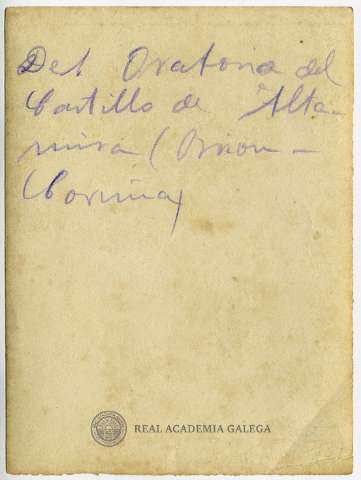 Del Oratorio del
Castillo de Alta-
mira (Brion -
Coruña)
REAL ACADEMIA GALEGA